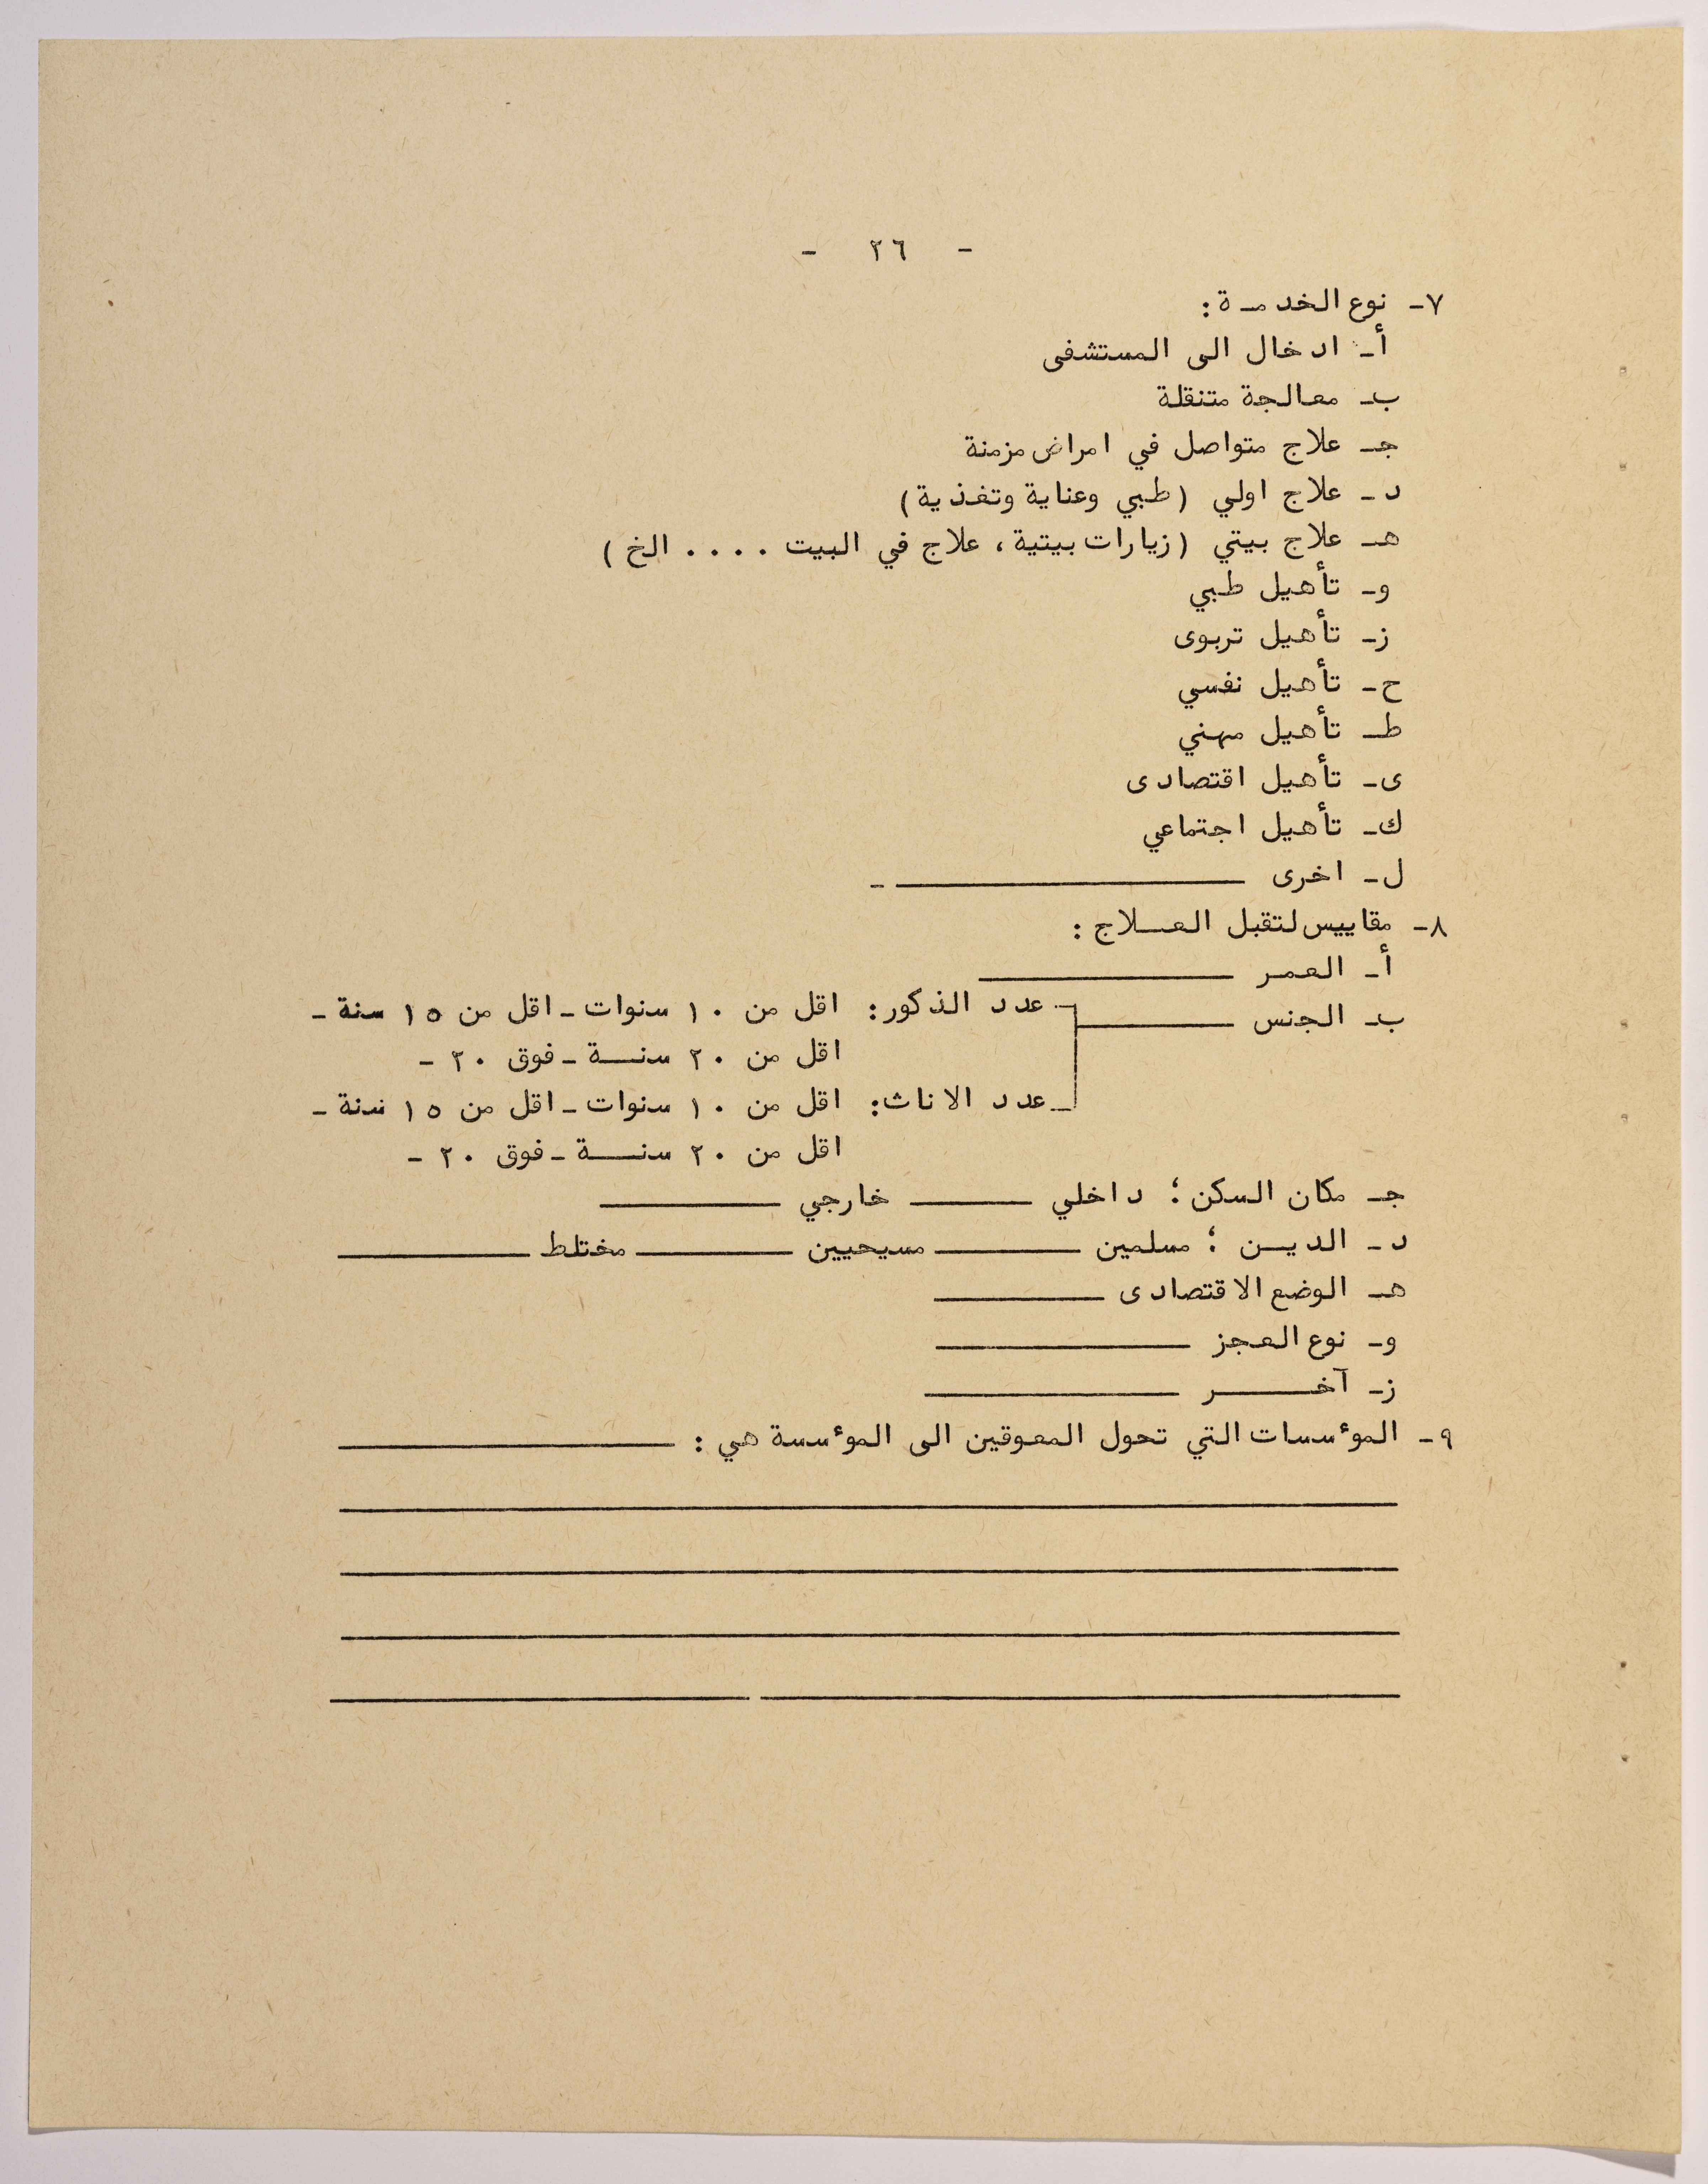 - ٢٦ -
٧- نوع الخدمـة :
أ- ادخال الى المستشفى
ب- معالجة متنقلة
جـ- علاج متواصل في امراض مزمنة
د- علاج اولي (طبي وعناية وتغذية)
هـ- علاج بيتي (زيارات بيتية، علاج في البيت .... الخ)
و- تأهيل طبي
ز- تأهيل تربوى
ح- تأهيل نفسي
ط- تأهيل مهني
ى- تأهيل اقتصادى
ك- تأهيل اجتماعي
ل- اخرى ــــــــــــــــ -
٨- مقاييس لتقبل العــلاج :
أ- العمـر ــــــــــــــــ
ب- الجنس ــــــــ عدد الذكور: اقل من ١٠ سنوات - اقل من ١٥ سنة -
اقل من ٢٠ سنـــة - فوق ٢٠ -
عدد الاناث: اقل من ١٠ سنوات - اقل من ١٥ سنة -
اقل من ٢٠ سنـــة - فوق ٢٠ -
جـ- مكان السكن ؛ داخلي ــــــــ خارجي ــــــــ
د- الديــن ؛ مسلمين ــــــــ مسيحيين ــــــــ مختلط ــــــــ
هـ- الوضع الاقتصادى ــــــــ
و- نوع العجز ــــــــ
ز- آخــــر ــــــــ
٩- المؤسسات التي تحول المعوقين الى المؤسسة هي : ــــــــ